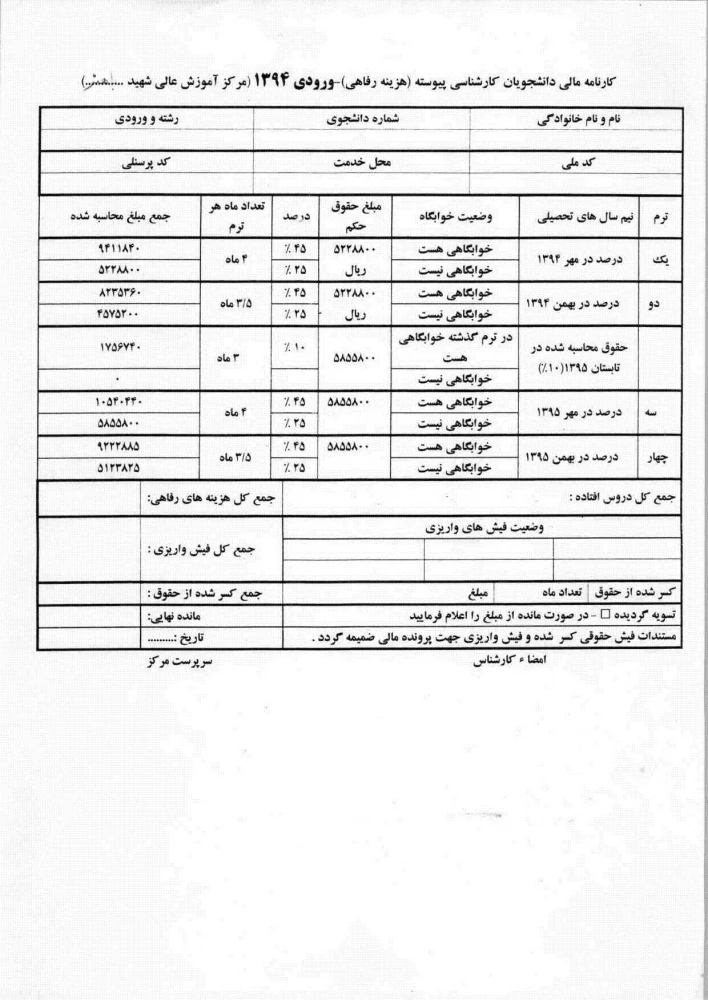 کارنامه مالی دانشجویان کارشناسی پیوسته (هزینه رفاهی)-ورودی ۱۳۹۴ (مرکز آموزش عالی شهید ......)
نام و نام خانوادگی شماره دانشجوی رشته و ورودی
کد ملی محل خدمت کد پرسنلی
ترم نیم سال های تحصیلی وضعیت خوابگاه مبلغ حقوق حکم درصد تعداد ماه هر ترم جمع مبلغ محاسبه شده
یک درصد در مهر ۱۳۹۴ خوابگاهی هست ۵۲۲۸۸۰۰ ۴۵ ٪ ۴ ماه ۹۴۱۱۸۴۰
خوابگاهی نیست ریال ۲۵ ٪ ۵۲۲۸۸۰۰
دو درصد در بهمن ۱۳۹۴ خوابگاهی هست ۵۲۲۸۸۰۰ ۴۵ ٪ ۳/۵ ماه ۸۲۳۵۳۶۰
خوابگاهی نیست ریال ۲۵ ٪ ۴۵۷۵۲۰۰
حقوق محاسبه شده در تابستان ۱۳۹۵(۱۰٪) در ترم گذشته خوابگاهی هست ۵۸۵۵۸۰۰ ۱۰ ٪ ۳ ماه ۱۷۵۶۷۴۰
خوابگاهی نیست ۰
سه درصد در مهر ۱۳۹۵ خوابگاهی هست ۵۸۵۵۸۰۰ ۴۵ ٪ ۴ ماه ۱۰۵۴۰۴۴۰
خوابگاهی نیست ۲۵ ٪ ۵۸۵۵۸۰۰
چهار درصد در بهمن ۱۳۹۵ خوابگاهی هست ۵۸۵۵۸۰۰ ۴۵ ٪ ۳/۵ ماه ۹۲۲۲۸۸۵
خوابگاهی نیست ۲۵ ٪ ۵۱۲۳۸۲۵
جمع کل دروس افتاده : جمع کل هزینه های رفاهی:
وضعیت فیش های واریزی
جمع کل فیش واریزی :
کسر شده از حقوق تعداد ماه مبلغ جمع کسر شده از حقوق :
تسویه گردیده □ - در صورت مانده از مبلغ را اعلام فرمایید مانده نهایی:
مستندات فیش حقوقی کسر شده و فیش واریزی جهت پرونده مالی ضمیمه گردد . تاریخ :.........
امضا ء کارشناس سرپرست مرکز